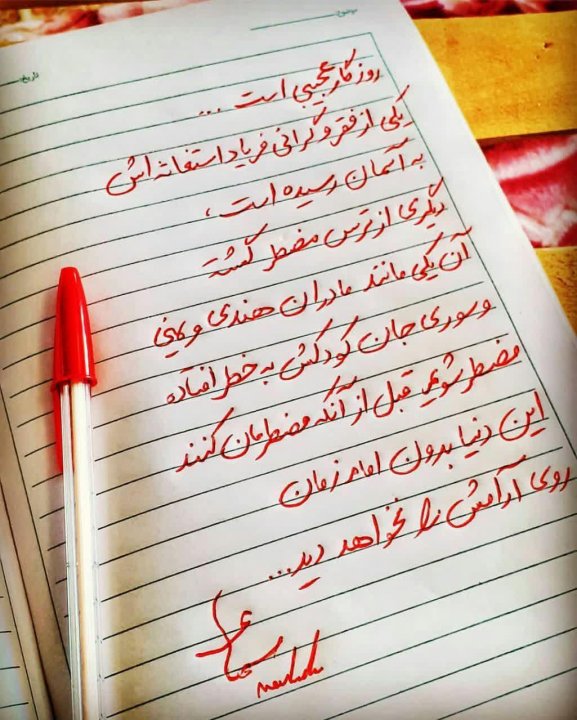 موضوع:
تاریخ:
روزگار عجیبی است ...
یکی از فقر و گرانی فریاد استغاثه اش
به آسمان رسیده است،
دیگری از ترس مضطر گشته
آن یکی مانند مادران هندی و یمنی
و سوری جان کودکش به خطر افتاده
مضطر شویم قبل از آنکه مضطرمان کنند
این دنیا بدون امام زمان
روی آرامش را نخواهد دید...